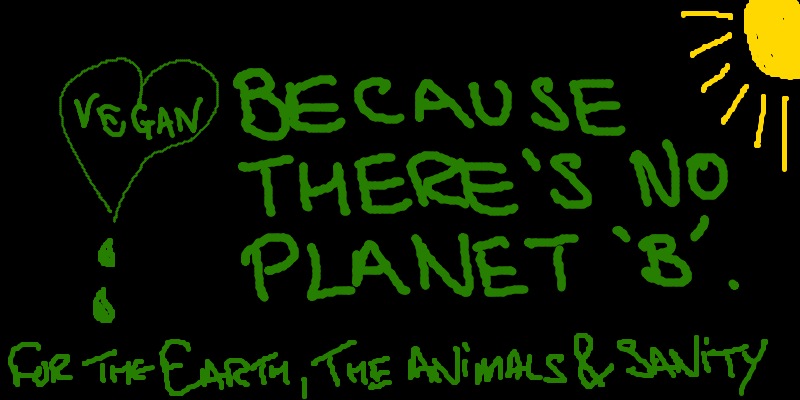 VEGAN
BECAUSE
THERE'S NO
PLANET 'B'.
FOR THE EARTH, THE ANIMALS & SANITY